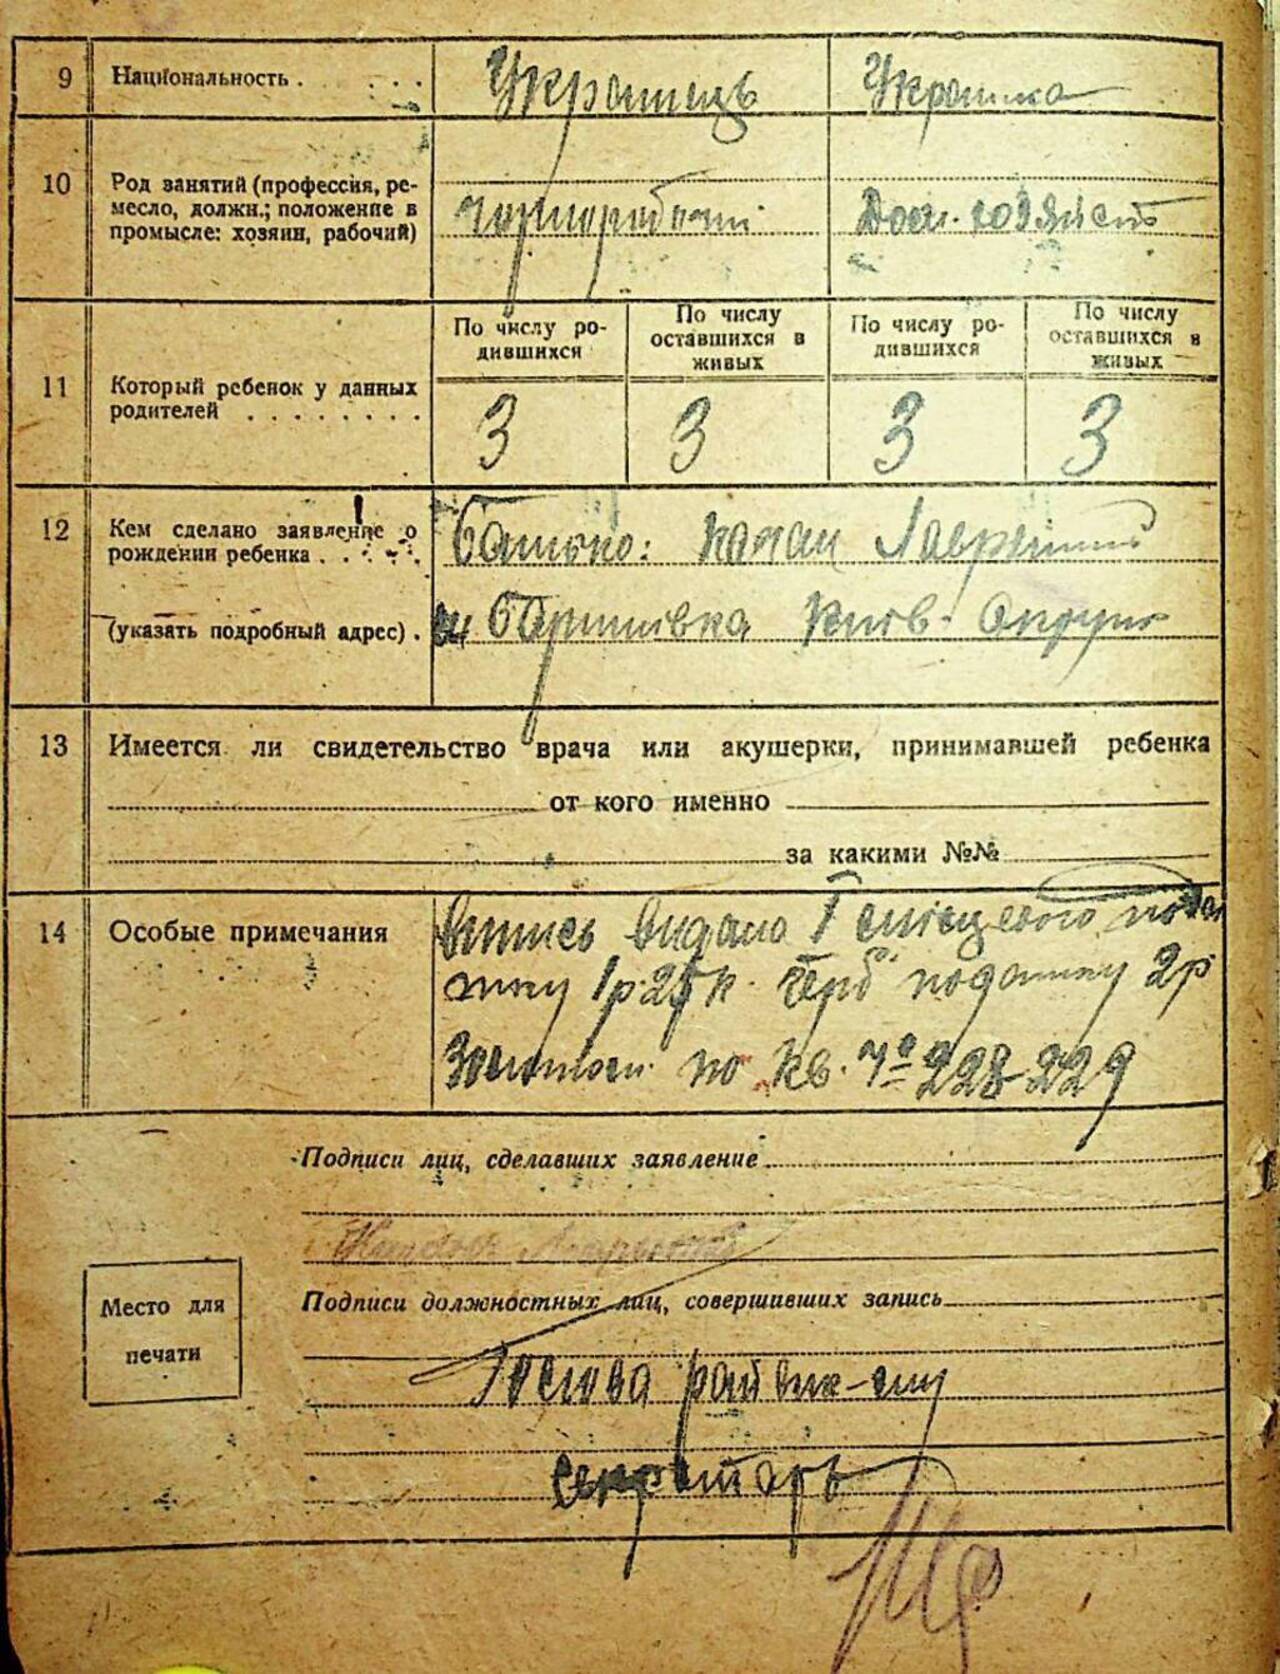 9 Национальность . . . . Украинець Украинка
10 Род занятий (профессия, ре-
месло, должн.; положение в
промысле: хозяин, рабочий)
чорноробочи Дом. хозяйств
11 Который ребенок у данных
родителей . . . . . . . .
По числу ро-
дившихся
По числу
оставшихся в
живых
По числу ро-
дившихся
По числу
оставшихся в
живых
3 3 3 3
12 Кем сделано заявление о
рождении ребенка . . . . .
Батько: Лаврентий
(указать подробный адрес) . Баришівка Київ. Округи
13 Имеется ли свидетельство врача или акушерки, принимавшей ребенка
от кого именно
за какими №№
14 Особые примечания
видано пода
тку 1р 25к. Герб податку 2р
по кв. № 228-229
Подписи лиц, сделавших заявление
Место для
печати
Подписи должностных лиц, совершивших запись
Голова
Секретарь